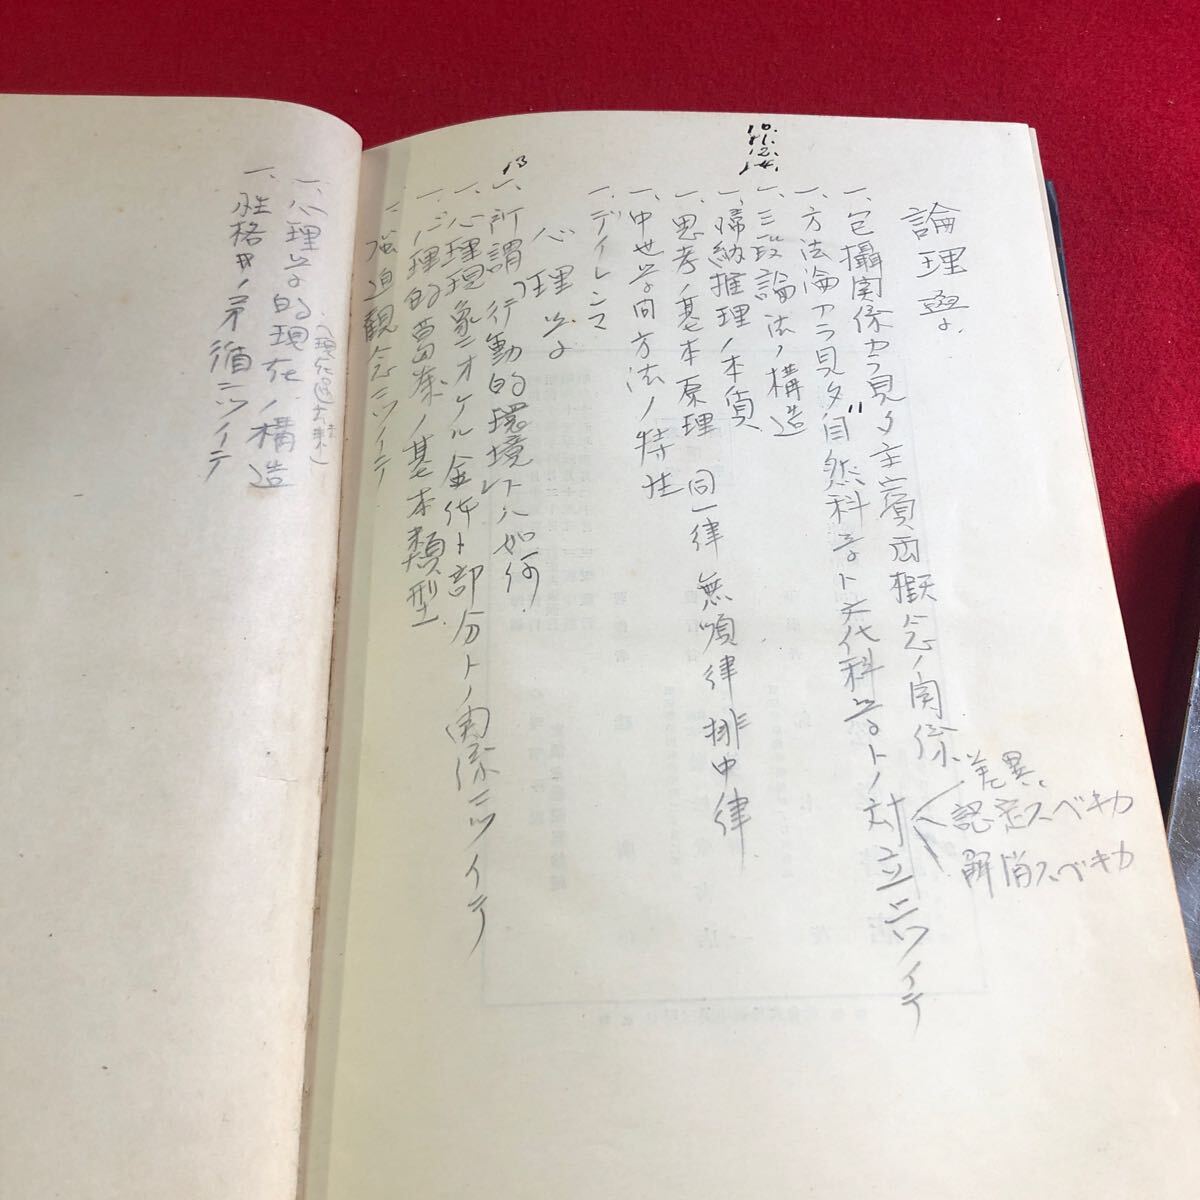 10.
11.
12.
14.
論理學
一、包攝関係カラ見タ主賓両概念ノ関係
一、方法論カラ見タ自然科学ト文化科学トノ対立ニツイテ
差異
認定スベキカ
解消スベキカ
一、三段論法ノ構造
一、帰納推理ノ本質
一、思考ノ基本原理 同一律 無順律 排中律
一、中世学問方法ノ特性
一、ディレンマ
心理学
13
一、所謂「行動的環境」トハ如何
一、心理現象ニオケル全体ト部分トノ関係ニツイテ
一、心理的葛藤ノ基本類型
一、強迫観念ニツイテ
一、心理学的現在ノ構造
一、性格ノ矛循ニツイテ